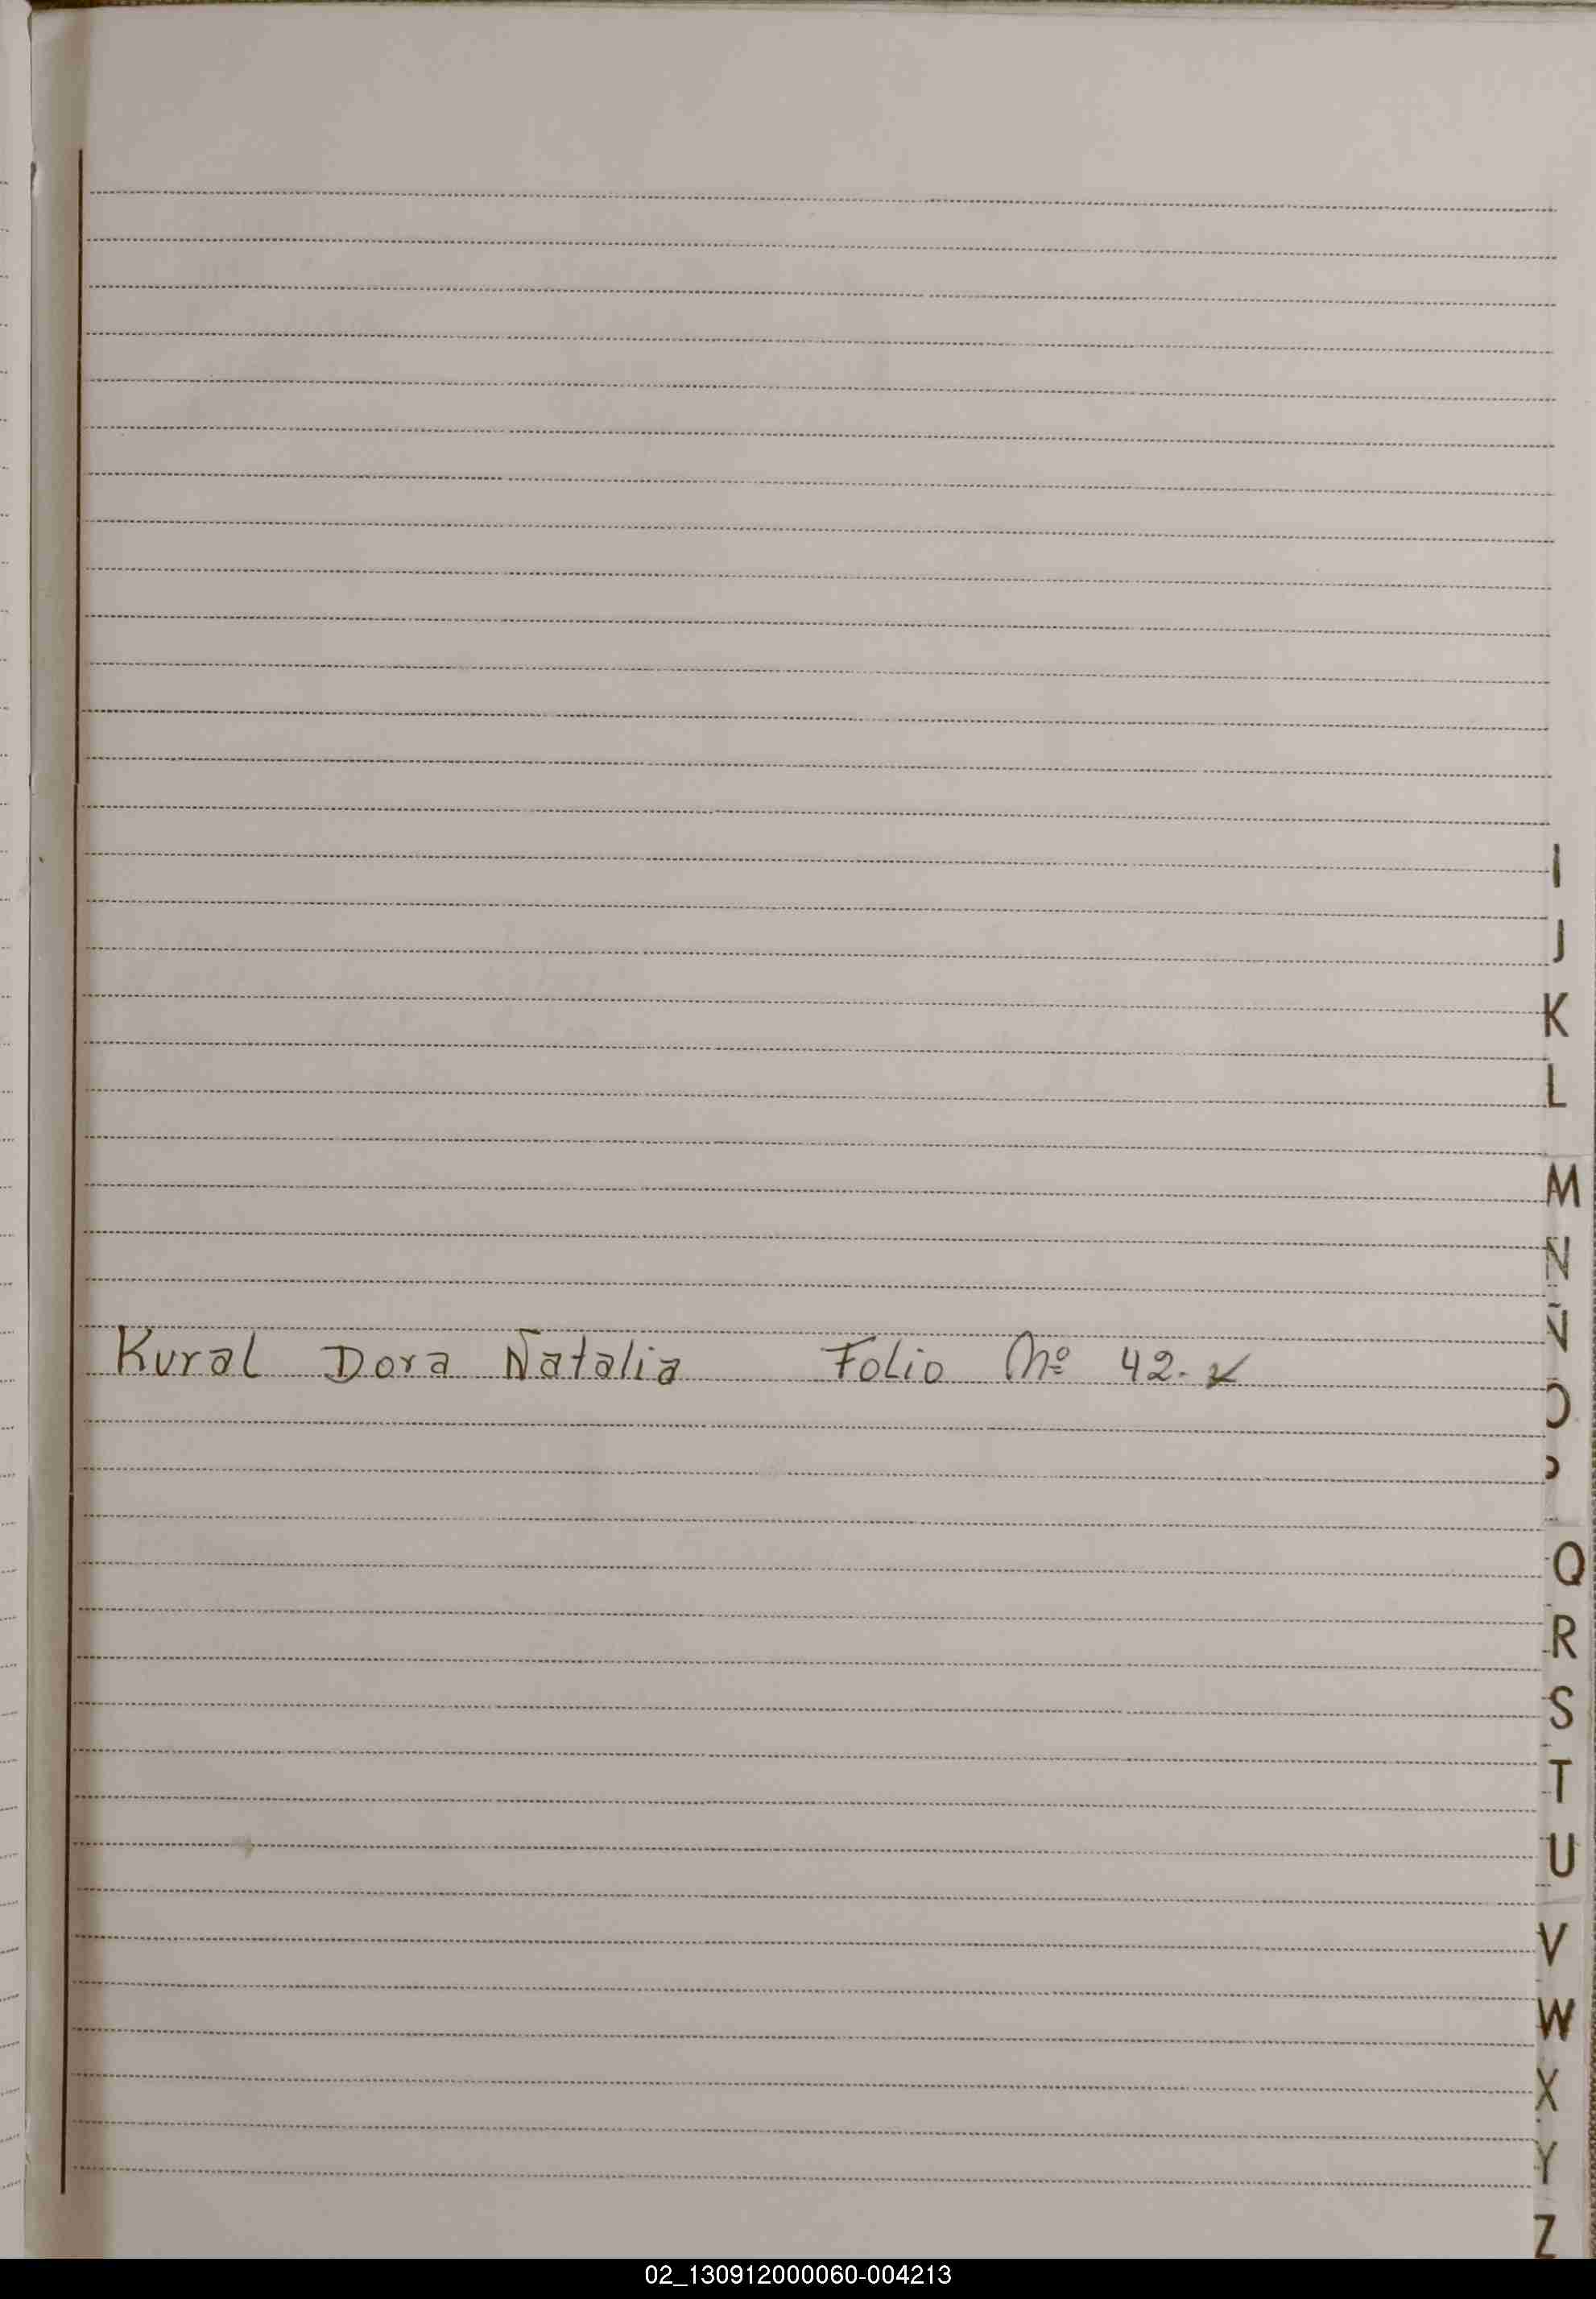 Kural Dora Natalia Folio Nº 42.
I
J
K
L
M
N
Ñ
O
P
Q
R
S
T
U
V
W
X
Y
Z
02_130912000060-004213